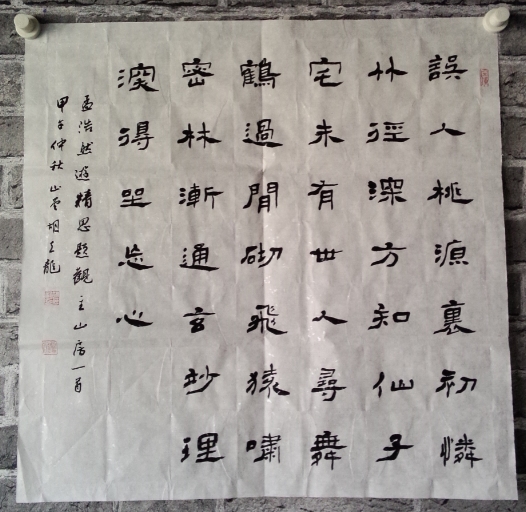 誤入桃源裏初憐
竹徑深方知仙子
宅未有世人尋舞
鶴過閒砌飛猿嘯
密林漸通玄妙理
深得坐忘心
孟浩然遊精思題觀主山房一首
甲午仲秋山胡玉龍